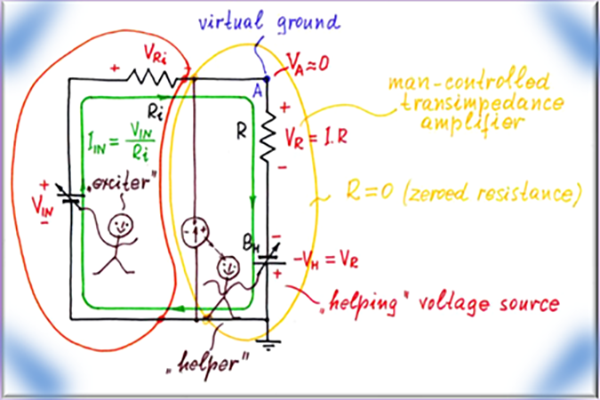 virtual ground
VRi
+ -
VA≈0
A
man-controlled
transimpedance
amplifier
Ri
+
R
VR = I.R
-
IIN = VIN
Ri
R=0 (zeroed resistance)
„exciter"
+
VIN
-
- +
BH
-
-VH = VR
+
„helping" voltage source
„helper"